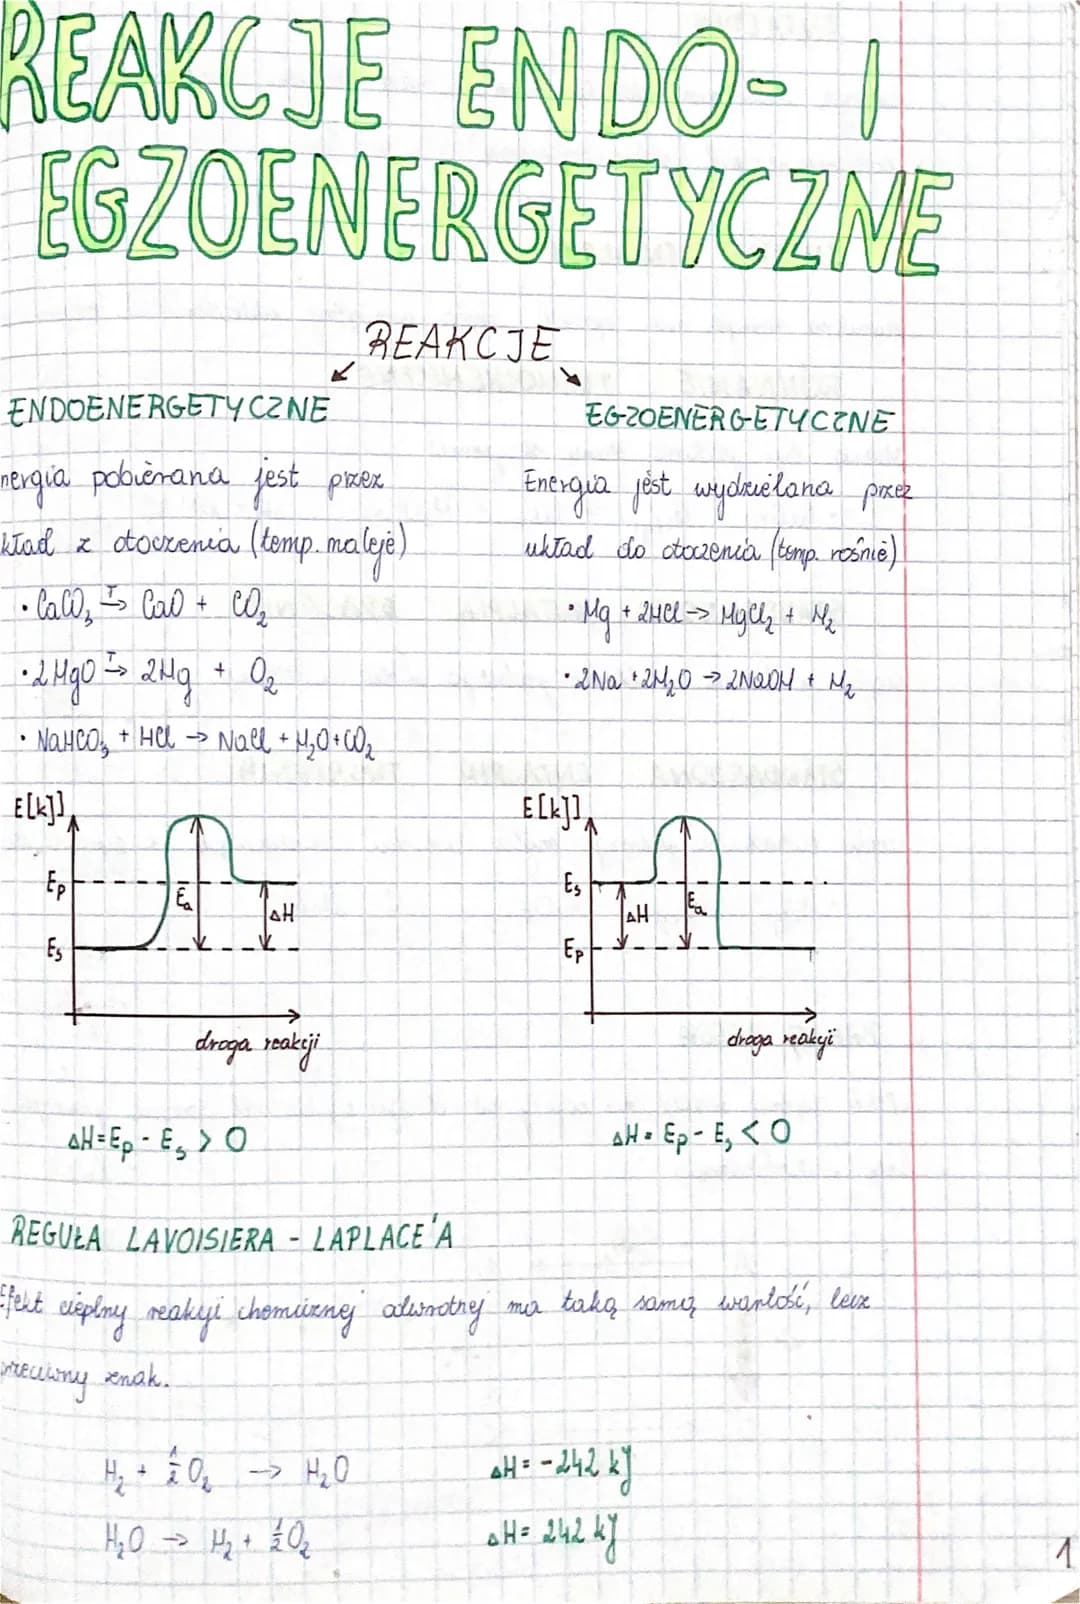 REAKCJE ENDO- I
EGZOENERGETYCZNE
REAKCJE
ENDOENERGETYCZNE
nergia pobierana jest przez
kład z otoczenia (temp. maleje)
• CaCO₃ T→ CaO + CO₂
• 2HgO T→ 2Hg + O₂
• NaHCO₃ + HCl → NaCl + H₂O+CO₂
EGZOENERGETYCZNE
Energia jest wydzielana przez
układ do otoczenia (temp. rośnie)
• Mg + 2HCl → MgCl₂ + H₂
• 2Na + 2H₂O → 2NaOH + H₂
E[kJ]
Ep
Ea
ΔH
Es
droga reakcji
ΔH = Ep - Es > 0
E[kJ]
Es
ΔH
Ea
Ep
droga reakcji
ΔH = Ep - Es < 0
REGUŁA LAVOISIERA - LAPLACE'A
Efekt cieplny reakcji chemicznej odwrotnej ma taką samą wartość, lecz
przeciwny znak.
H₂ + ½O₂ → H₂O ΔH = -242 kJ
H₂O → H₂ + ½O₂ ΔH = 242 kJ
1